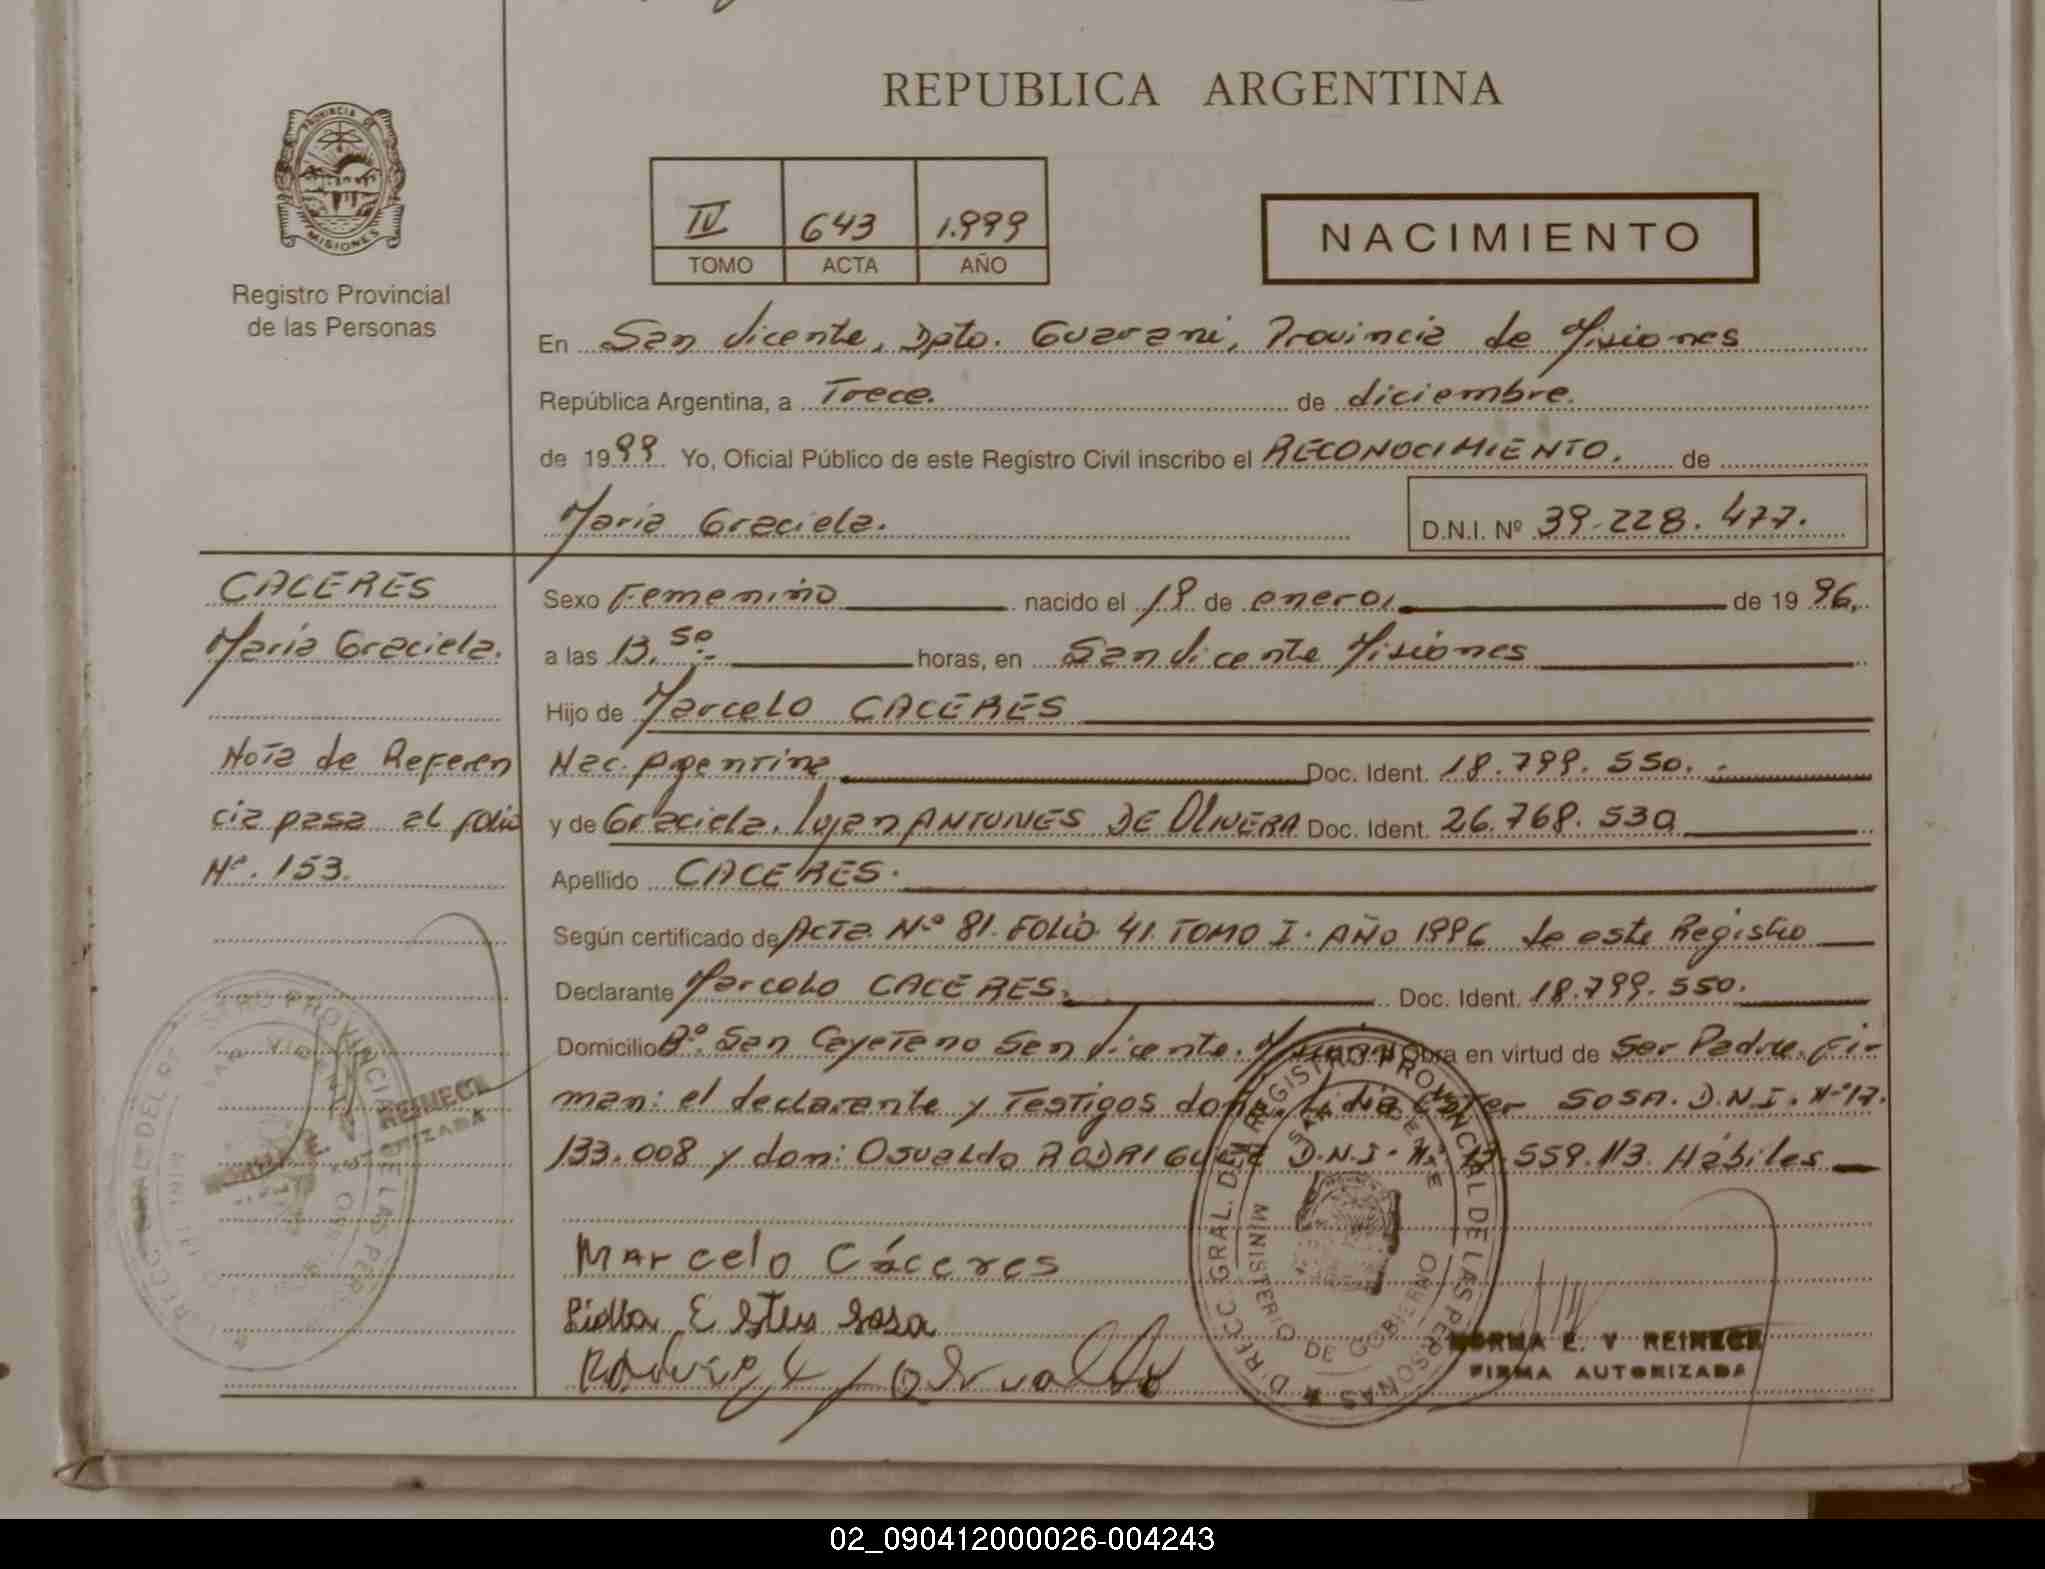 REPUBLICA ARGENTINA
PROVINCIA DE
MISIONES
Registro Provincial
de las Personas
IV 643 1.999
TOMO ACTA AÑO
NACIMIENTO
En San Vicente, Dpto. Guarani, Provincia de Misiones
República Argentina, a Trece. de diciembre.
de 1999 Yo, Oficial Público de este Registro Civil inscribo el RECONOCIMIENTO. de
Maria Graciela. D.N.I. Nº 39.228.477.
CACERES
Maria Graciela.
Nota de Referen
cia pasa al folio
Nº. 153.
Sexo Femenino nacido el 19 de enero, de 1996,
a las 13.50- horas, en San Vicente Misiones
Hijo de Marcelo CACERES
Nac. Argentina Doc. Ident. 18.799.550.
y de Graciela, Lujan ANTUNES DE OLIVERA Doc. Ident. 26.768.530
Apellido CACERES.
Según certificado de Acta Nº 81. FOLIO 41. TOMO I. AÑO 1996 de este Registro
Declarante Marcelo CACERES. Doc. Ident. 18.799.550.
Domicilio Bº. San Cayetano San Vicente, Misiones Obra en virtud de Ser Padre. Fir-
man: el declarante y Testigos doña: Lidia Ester SOSA. D.N.I. Nº 17.
133.008 y don: Osvaldo RODRIGUEZ D.N.I. Nº 559.113. Hábiles
Marcelo Cáceres
Lidia Ester Sosa
Rodriguez Osvaldo
DIRECC. GRAL. DEL REGISTRO PROVINCIAL DE LAS PERSONAS
SAN VICENTE
MINISTERIO DE GOBIERNO
NORMA E. V REINECK
FIRMA AUTORIZADA
02_090412000026-004243